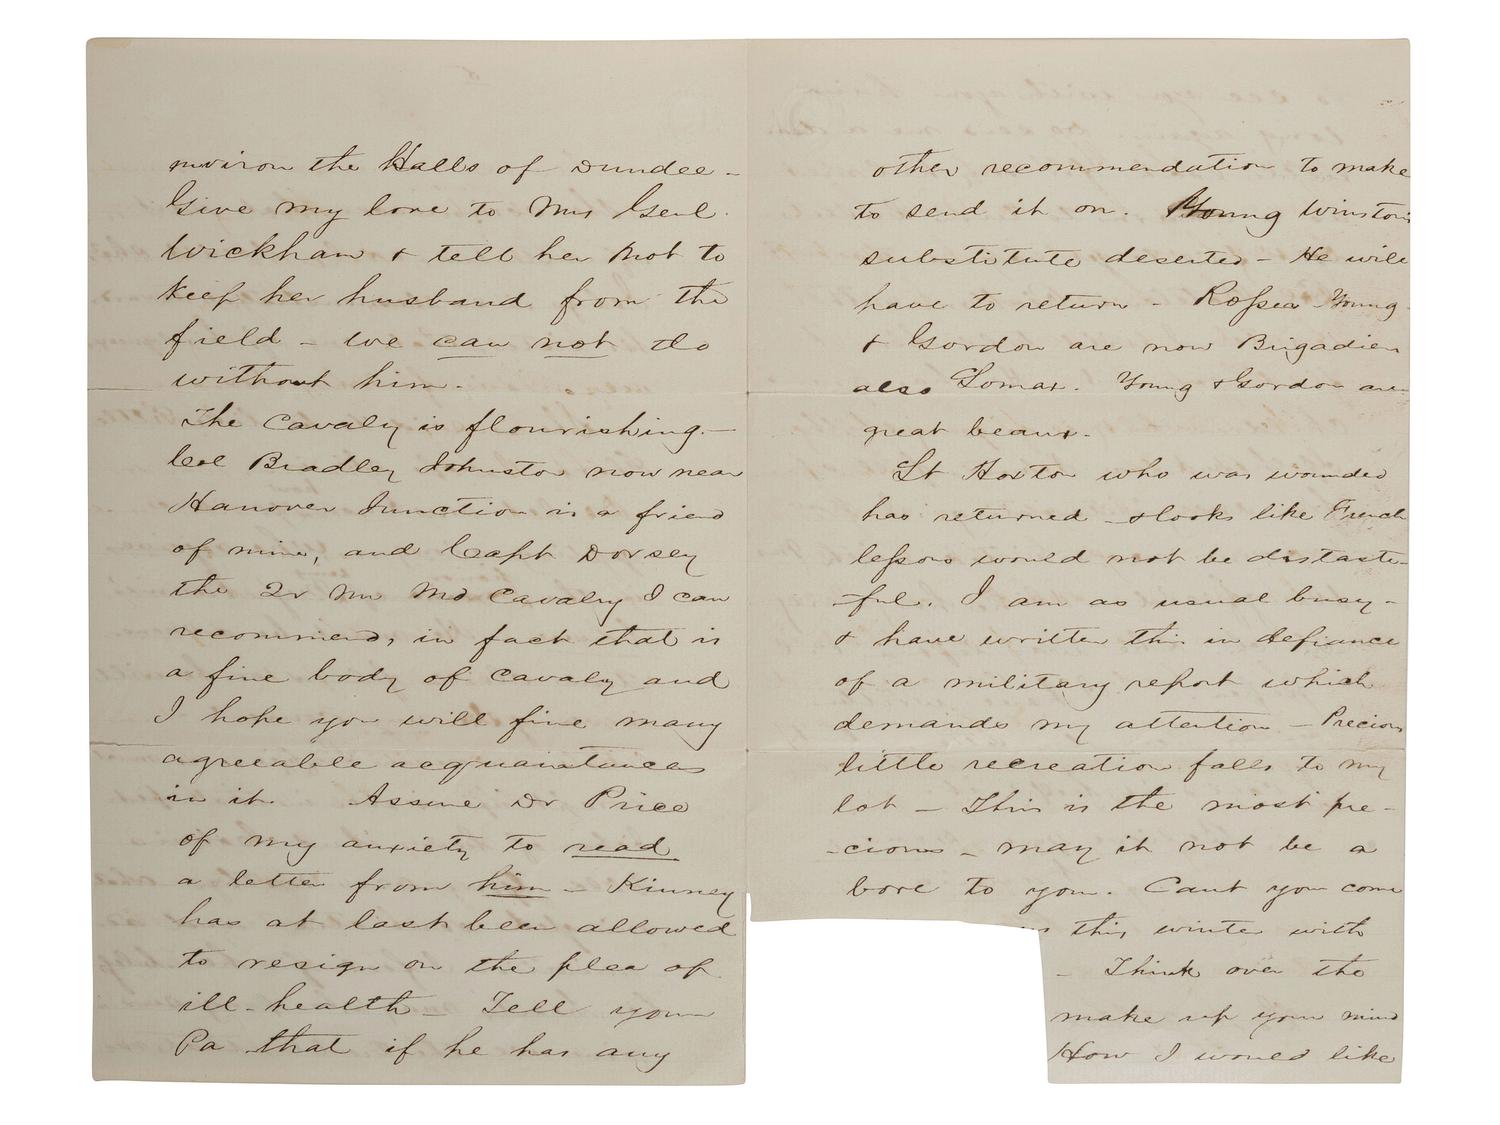 environ the Halls of Dundee -
Give my love to Mrs Genl.
Wickham & tell her not to
keep her husband from the
field - we can not do
without him.
The Cavalry is flourishing. -
Col Bradley Johnston now near
Hanover Junction is a friend
of mine, and Capt Dorsey
the Md Cavalry I can
recommend, in fact that is
a fine body of Cavalry and
I hope you will fine many
agreeable acquaintances
in it. Assure Dr Price
of my anxiety to read
a letter from him - Kinney
has at last been allowed
to resign on the plea of
ill-health - Tell your
Pa that if he has any
other recommendation to make
to send it on. Young Winston's
substitute deserted - He will
have to return - Rosser Young
& Gordon are now Brigadiers
also Lomax. Young & Gordon are
great beaux.
Lt Hoxton who was wounded
has returned - & looks like French
lessons would not be distaste-
-ful. I am as usual busy -
& have written this in defiance
of a military report which
demands my attention - Precious
little recreation falls to my
lot - This is the most pre-
-cious - may it not be a
bore to you. Cant you come
this winter with
- Think over the
make up your mind
How I would like